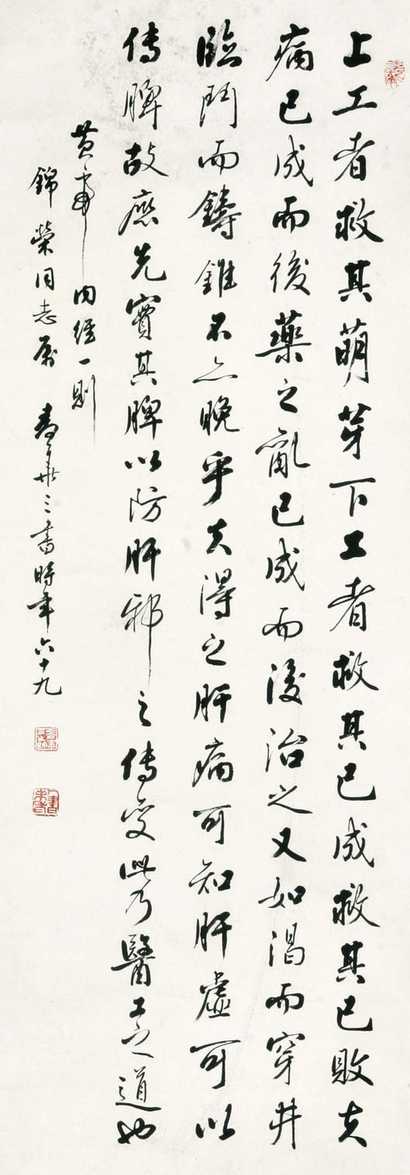 上工者救其萌芽下工者救其已成救其已敗夫
病已成而後藥之亂已成而後治之又如渴而穿井
臨鬥而鑄錐不亦晚乎夫得之肝病可知肝虛可以
傳脾故應先實其脾以防肝邪之傳變此乃醫工之道也
黃帝內經一則
錦榮同志屬 三書時年六十九